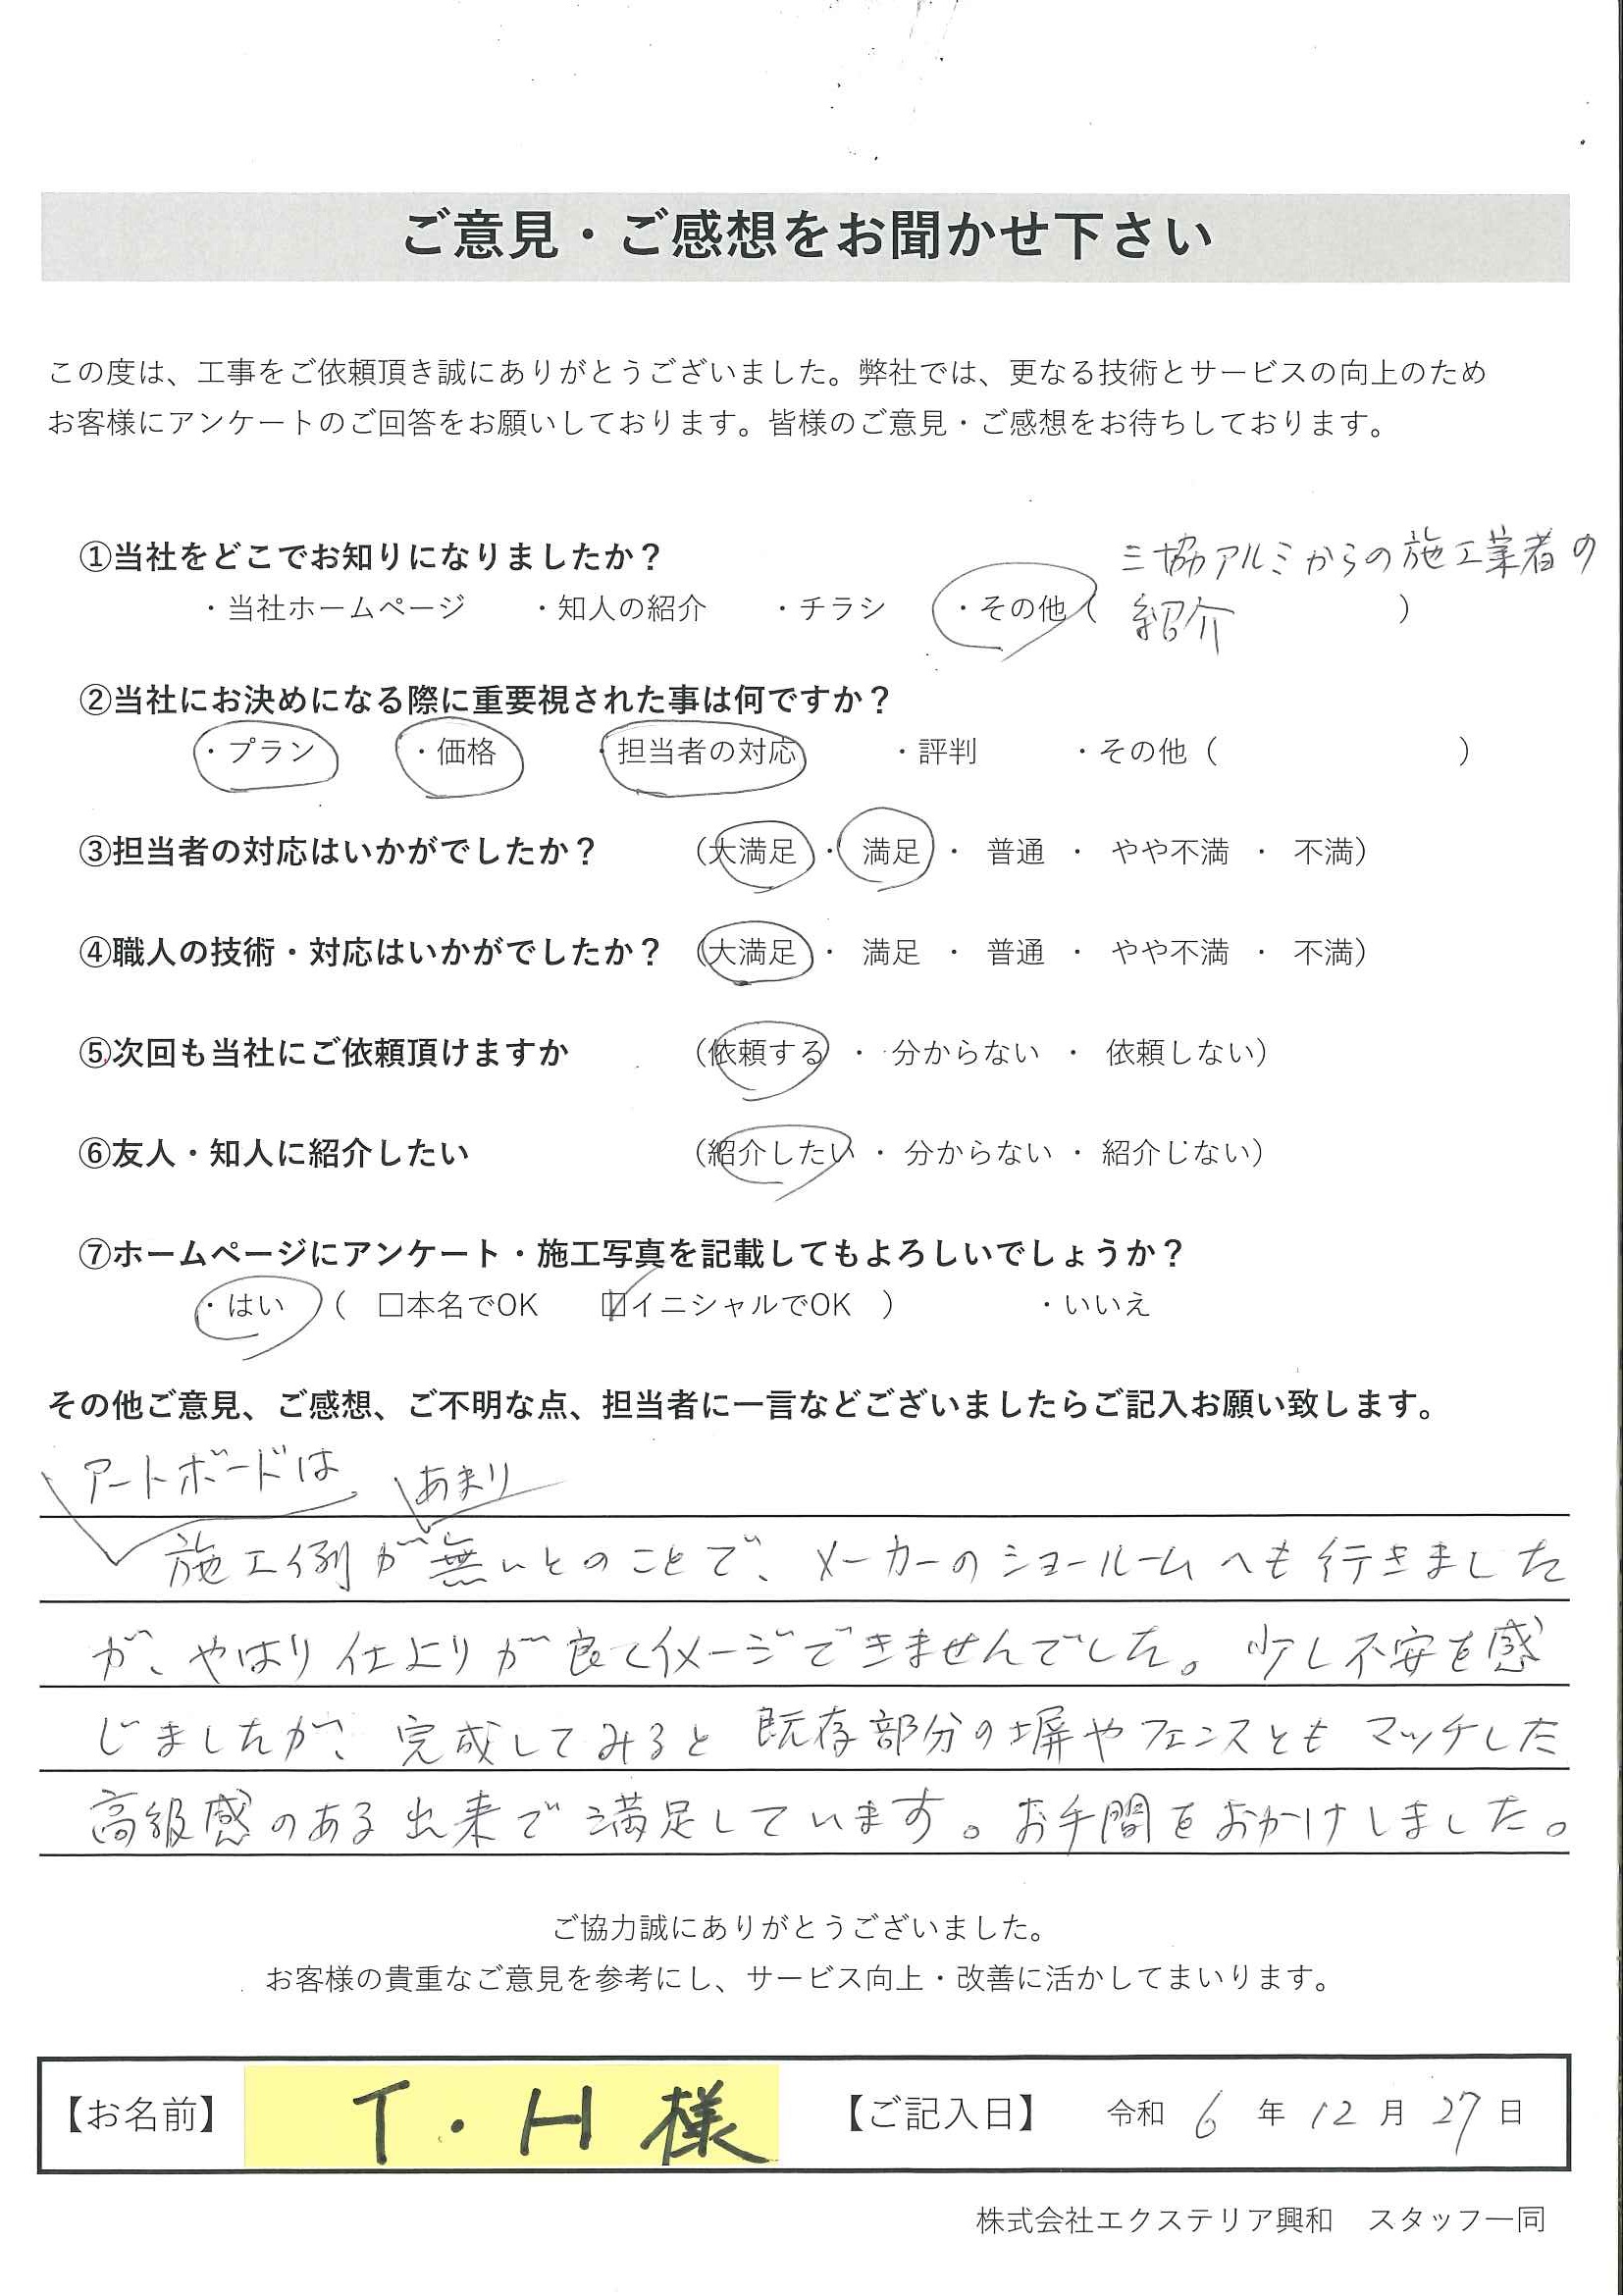 ご意見・ご感想をお聞かせ下さい
この度は、工事をご依頼頂き誠にありがとうございました。弊社では、更なる技術とサービスの向上のため
お客様にアンケートのご回答をお願いしております。皆様のご意見・ご感想をお待ちしております。
①当社をどこでお知りになりましたか？
・当社ホームページ ・知人の紹介 ・チラシ ・その他（ 三協アルミからの施工業者の
紹介 ）
②当社にお決めになる際に重要視された事は何ですか？
・プラン ・価格 ・担当者の対応 ・評判 ・その他（ ）
③担当者の対応はいかがでしたか？ （大満足 ・ 満足 ・ 普通 ・ やや不満 ・ 不満）
④職人の技術・対応はいかがでしたか？ （大満足 ・ 満足 ・ 普通 ・ やや不満 ・ 不満）
⑤次回も当社にご依頼頂けますか （依頼する ・ 分からない ・ 依頼しない）
⑥友人・知人に紹介したい （紹介したい ・ 分からない ・ 紹介じない）
⑦ホームページにアンケート・施工写真を記載してもよろしいでしょうか？
・はい （ □本名でOK ☑イニシャルでOK ） ・いいえ
その他ご意見、ご感想、ご不明な点、担当者に一言などございましたらご記入お願い致します。
アートボードは あまり
施工例が無いとのことで、メーカーのショールームへも行きました
が、やはり仕上りが良くイメージできませんでした。少し不安を感
じましたが、完成してみると既存部分の塀やフェンスともマッチした
高級感のある出来で満足しています。お手間をおかけしました。
ご協力誠にありがとうございました。
お客様の貴重なご意見を参考にし、サービス向上・改善に活かしてまいります。
【お名前】 T・H 様 【ご記入日】 令和 6 年 12 月 27 日
株式会社エクステリア興和 スタッフ一同